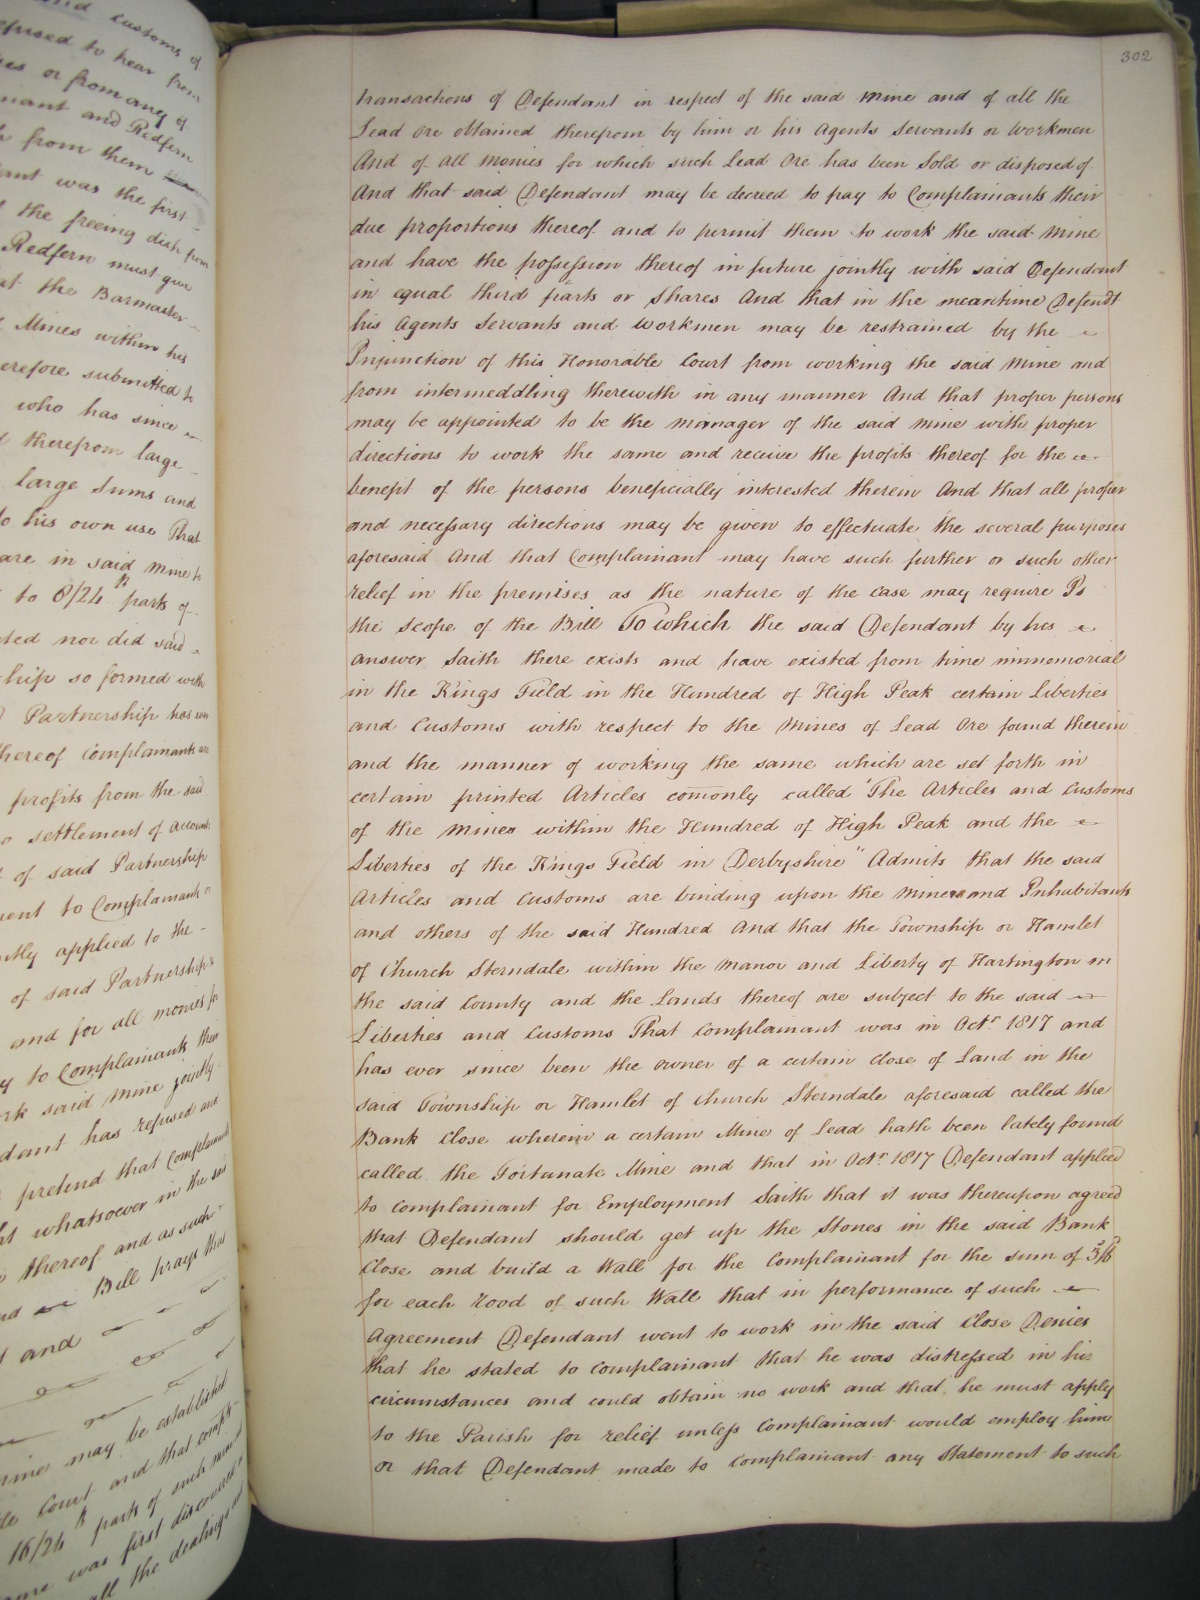 and customs of
refused to hear from
or from any of
and Redfern
from them
was the first
the freeing dish from
Redfern must give
at the Barmaster
Mines within his
therefore submitted to
who has since
therefrom large
large Sums and
to his own use That
are in said Mine to
to 8/24th parts of
nor did said
ship so formed with
Partnership has
thereof Complainants are
profits from the said
settlement of Accounts
of said Partnership
to Complainants
applied to the
of said Partnership
and for all monies for
to Complainants their
work said Mine jointly
has refused and
pretend that Complainants
whatsoever in the said
thereof and as such
Bill prays that
and
mine may be established
Court and that
16/24th parts of such
was first discovered
all the dealings and
302
transactions of Defendant in respect of the said Mine and of all the
Lead Ore obtained therefrom by him or his Agents Servants or Workmen
And of all Monies for which such Lead Ore has been Sold or disposed of
And that said Defendant may be decreed to pay to Complainants their
due proportions thereof and to permit them to work the said Mine
and have the possession thereof in future jointly with said Defendant
in equal third parts or Shares And that in the meantime Defendt
his Agents Servants and Workmen may be restrained by the
Injunction of this Honorable Court from working the said Mine and
from intermeddling therewith in any manner And that proper persons
may be appointed to be the manager of the said Mine with proper
directions to work the same and receive the profits thereof for the
benefit of the persons beneficially interested therein And that all proper
and necessary directions may be given to effectuate the several purposes
aforesaid And that Complainant may have such further or such other
relief in the premises as the nature of the case may require Is
the Scope of the Bill To which the said Defendant by his
answer Saith there exists and have existed from time immemorial
in the Kings Field in the Hundred of High Peak certain Liberties
and Customs with respect to the Mines of Lead Ore found therein
and the manner of working the same which are set forth in
certain printed Articles comonly called "The Articles and Customs
of the Mines within the Hundred of High Peak and the
Liberties of the Kings Field in Derbyshire" Admits that the said
Articles and Customs are binding upon the Miners and Inhabitants
and others of the said Hundred And that the Township or Hamlet
of Church Sterndale within the Manor and Liberty of Hartington in
the said County and the Lands thereof are subject to the said
Liberties and Customs That Complainant was in Octr 1817 and
has ever since been the owner of a certain Close of Land in the
said Township or Hamlet of Church Sterndale aforesaid called the
Bank Close wherein a certain Mine of Lead hath been lately found
called the Fortunate Mine and that in Octr 1817 Defendant applied
to Complainant for Employment Saith that it was thereupon agreed
that Defendant should get up the Stones in the said Bank
Close and build a Wall for the Complainant for the sum of 5/6
for each Rood of such Wall that in performance of such
Agreement Defendant went to work in the said Close Denies
that he stated to Complainant that he was distressed in his
circumstances and could obtain no work and that he must apply
to the Parish for relief unless Complainant would employ him
or that Defendant made to Complainant any Statement to such